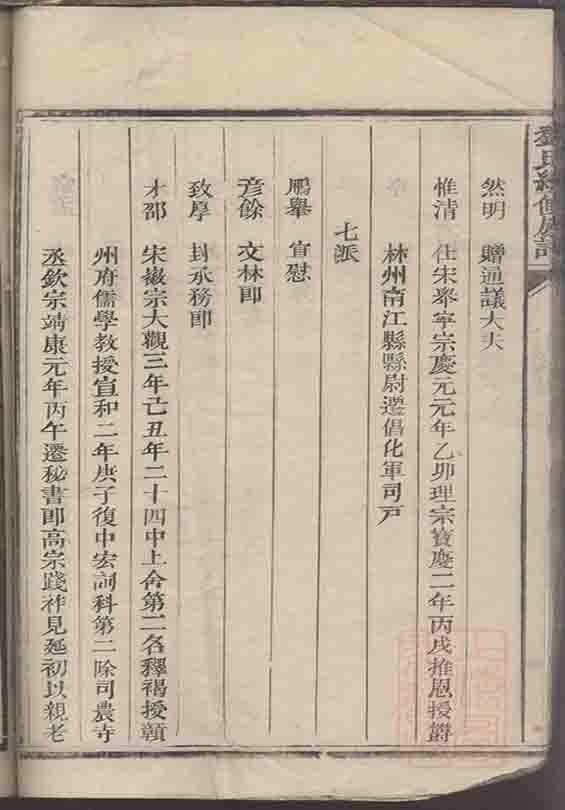 然明　贈通議大夫
惟清　仕宋舉寧宗慶元元年乙卯理宗寳慶二年丙戌推恩授欝
林州南江縣縣尉遷倡化軍司戸
七派
鵬舉　宣慰
彦餘　文林郎
致厚　封承務郎
才邵　宋徽宗大觀三年己丑年二十四中上舍第二名釋褐授贛
州府儒學教授宣和二年庚子復中宏詞科第二除司農寺
丞欽宗靖康元年丙午遷秘書郎高宗踐祚見延初以親老
氏